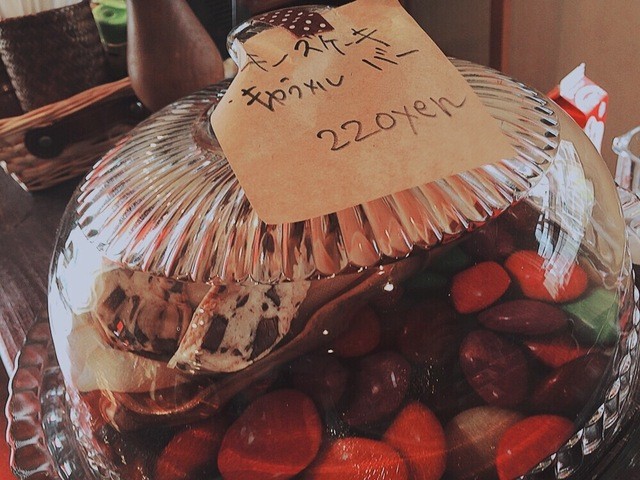 チーズケーキ
バー
・キャラメル
220yen